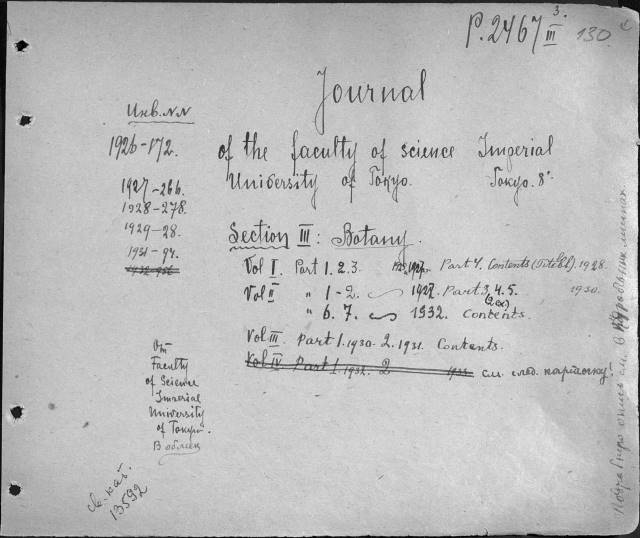 P.2467 III 3. 130
Journal
of the faculty of science Imperial
University of Tokyo. Tokyo. 8°.
Инв. NN
1926-172.
1927-266.
1928-278.
1929-28.
1931-97.
Section III: Botany.
Vol I. Part 1. 2. 3. 1927. Part 4. Contents (Titelbl). 1928.
Vol II " 1-2. 1927. Part 3, 4. 5. 1930.
" 6. 7. 1932. Contents.
Vol III Part 1. 1930-2. 1931. Contents.
Vol IV Part 1. 1932. 2 см. след. карточку!
Faculty
of Science
Imperial
University
of Tokyo.
В обмен
13592